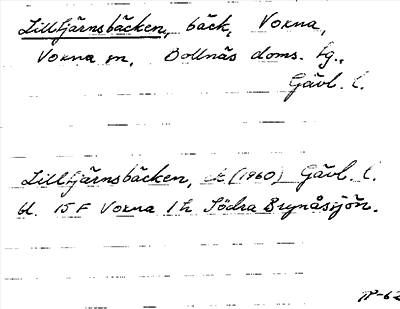 Lilltjärnsbäcken, bäck, Voxna,
Voxna sn, Bollnäs doms. fg.,
Gävl. l.
Lilltjärnsbäcken, ek (1960) Gävl. l.
bl. 15 F Voxna 1 h Södra Brynåssjön.